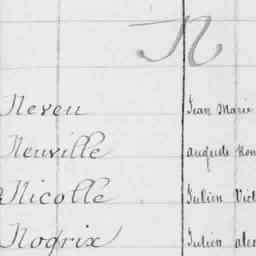 N
Neveu Jean Marie
Neuville auguste
Nicolle Julien Vict
Nogrix Julien alex